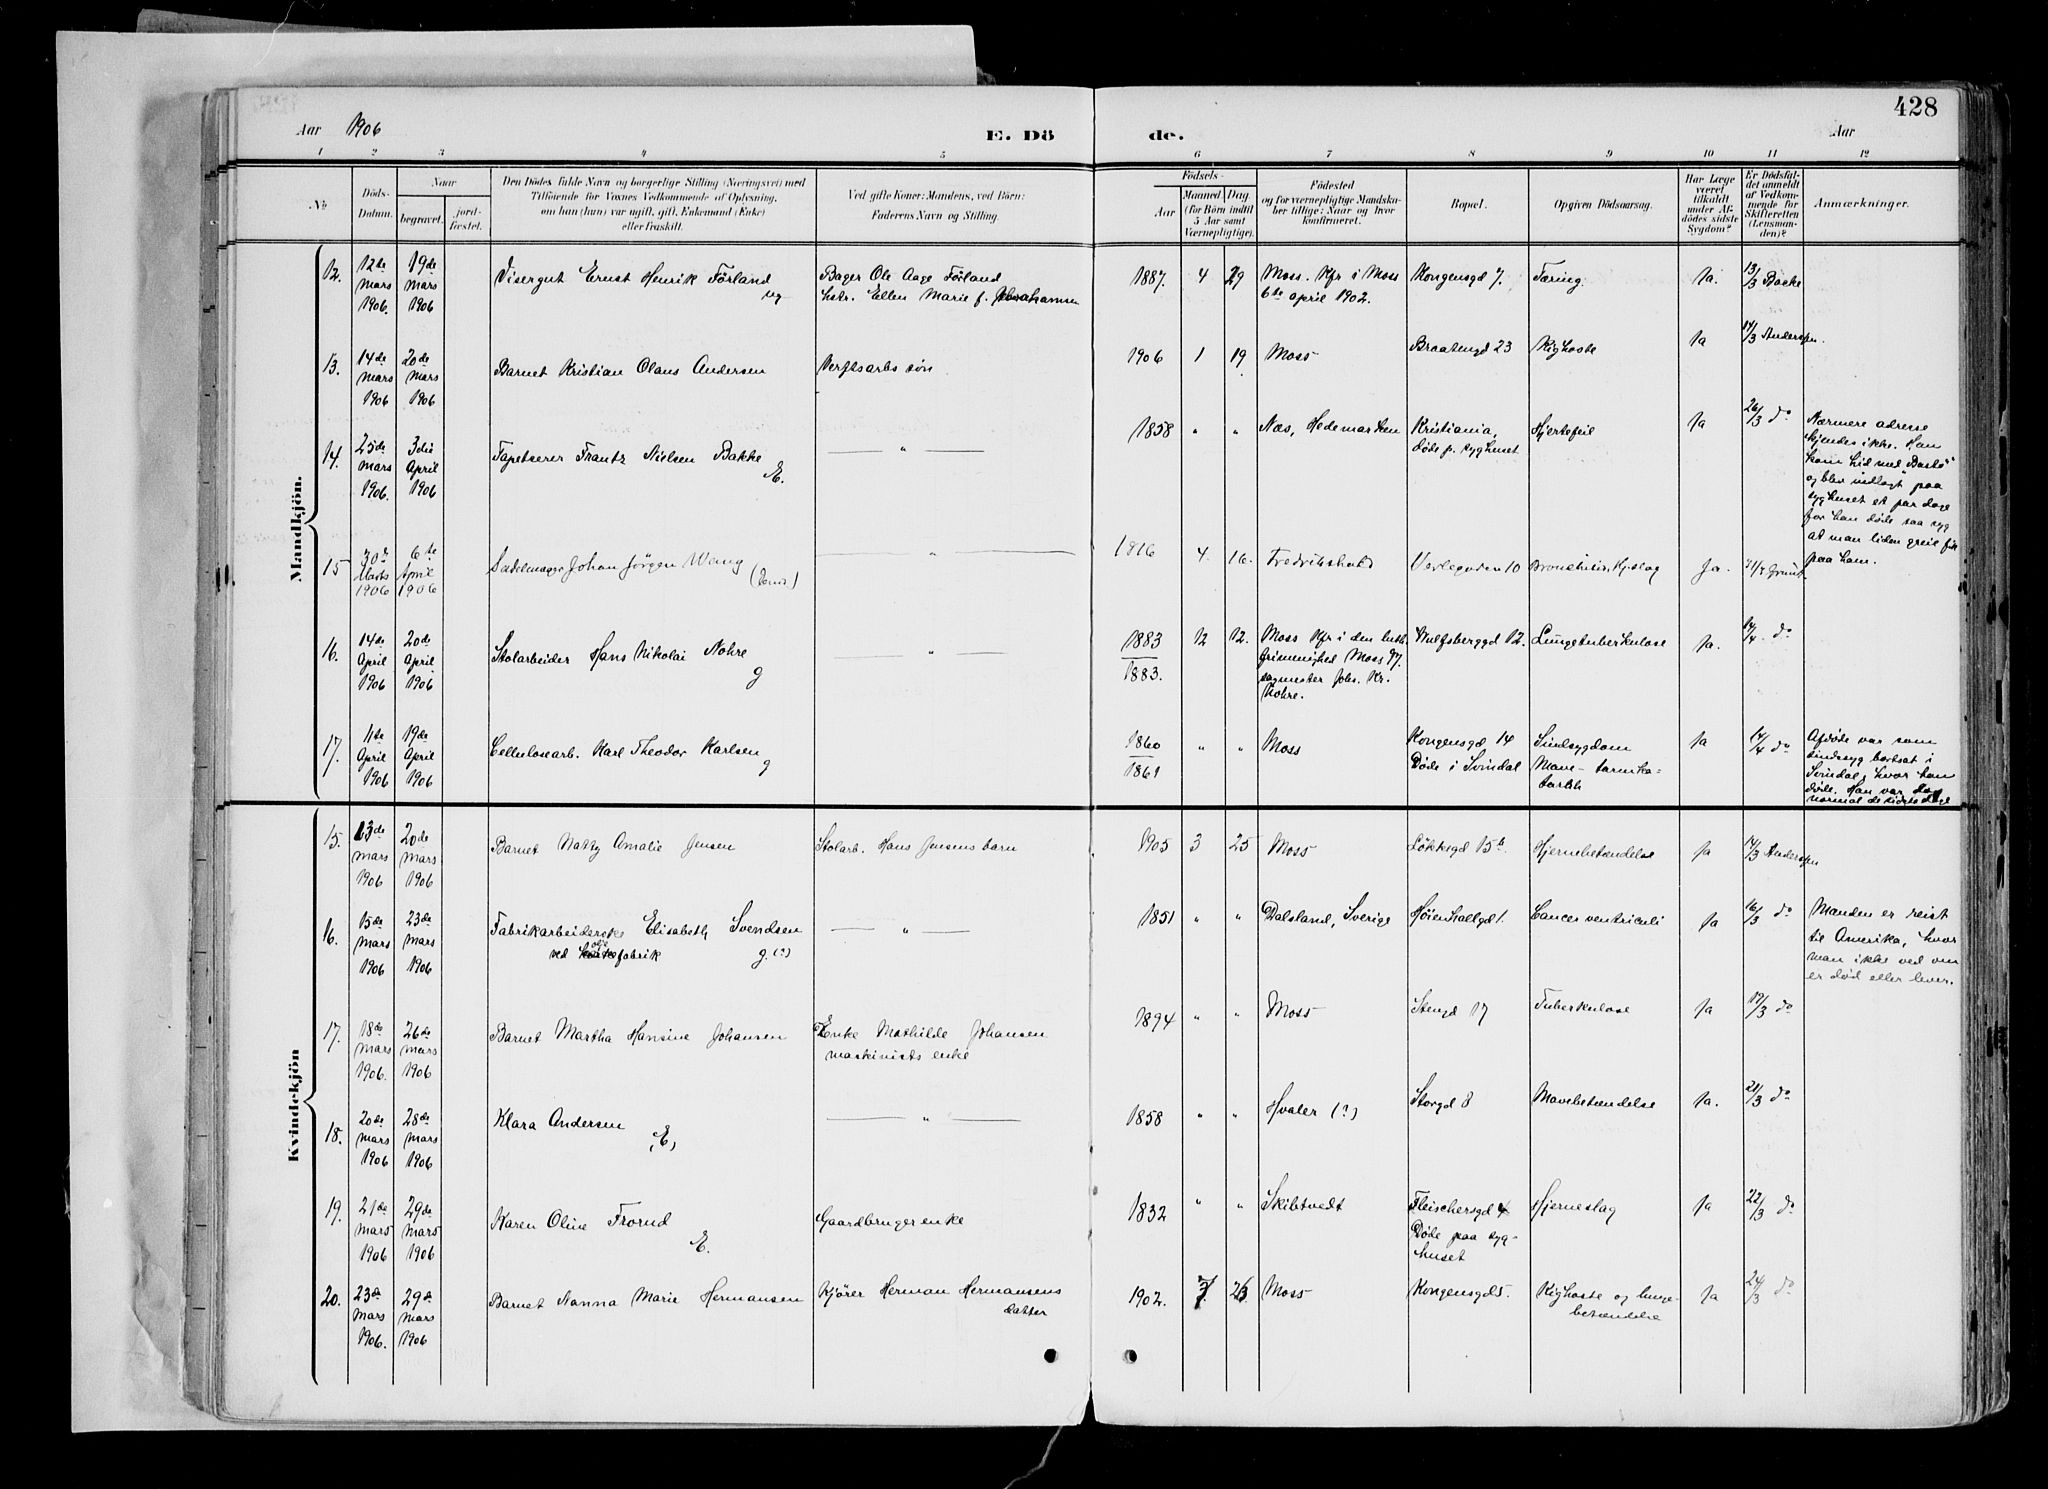 428
Aar 1906
E. Dö
de.
Aar
1 2 3 4 5 6 7 8 9 10 11 12
No.
Döds-
Datum.
Naar
begravet.
jord-
fæstet.
Den Dödes fulde Navn og borgerlige Stilling (Næringsvei) med
Tilföiende for Voxnes Vedkommende af Oplysning,
om han (hun) var ugift, gift, Enkemand (Enke)
eller fraskilt.
Ved gifte Koner: Mandens, ved Börn:
Faderens Navn og Stilling.
Födsels-
Aar
Maaned
Dag
(for Börn indtil
5 Aar samt
Værnepligtige).
Födested
og for værnepligtige Mandska-
ber tillige: Naar og hvor
konfirmeret.
Bopæl.
Opgiven Dödsaarsag.
Har Læge
været
tilkaldt
under Af-
dödes sidste
Sygdom?
Er Dödsfal-
det anmeldt
af Vedkom-
mende for
Skifteretten
(Lensman-
den)?
Anmærkninger.
Mandkjön.
12. 12te mars 1906. 19de mars 1906 Visergut Ernst Henrik Förland ug Bager Ole Aage Förland
hstr. Ellen Marie f. Abrahamsen 1887. 4 29 Moss. Kfr i Moss
6te april 1902. Kongensgd 7. Tæring. Ja. 13/3 Backe
13. 14de mars 1906 20de mars 1906 Barnet Kristian Olaus Andersen Verftsarbs sön 1906 1 19. Moss Braatengd 23 Kighoste Ja 14/3 Andersen.
14. 25de mars 1906. 3die April 1906 Tapetserer Frantz Nielsen Bakke E. — " — 1858 " " Næs, Hedemarken Kristiania,
Döde p. syghuset Hjertefeil Ja 26/3 do Nærmere adresse
kjendes ikke. Han
kom hid med "Bastö"
og blev indlagt paa
syghuset et par dage
för han döde saa syg
at man liden greie fik
paa ham.
15 30d Marts 1906 6te April 1906 Sadelmager Johan Jörgen Wang — " — 1816 4. 16. Fredrikshald Verlegaden 10 Ja.
16. 14de April 1906 20de April 1906 Stolarbeider Hans Nikolai Nohre g — " — 1883
1883. 12 12. Moss Kfr i den luth.
frimenighed Moss 97.
sagmester Johs. Kr.
Nohre. Wulfsberggd 12. Lungetuberkulose Ja. 17/4. do
17. 11te April 1906 19de April 1906 Celluloseearb. Karl Theodor Karlsen g 1860
1861 " " Moss Kongensgd 14
Döde i Svindal Sindsygdom
Mave- tarmka-
tarhh Ja 14/4 do Afdöde var som
sindssyg bortsat i
Svindal, hvor han
döde. Han var dog
normal de sidste dage
Kvindekjön
15. 13de mars 1906 20de mars 1906 Barnet Natty Amalie Jensen Stolarb. Hans Jensens barn 1905 3 25 Moss Lökkegd 15b. Hjernebetændelse Ja 14/3 Andersen
16. 15de mars 1906 23de mars 1906 Fabrikarbeiderske Elisabeth Svendsen
ved fabrik g. (?) — " — 1851 " " Dalsland, Sverige Höienhallgd 1. Cancer ventriculi Ja 16/3 do Manden er reist
til Amerika, hvor
man ikke ved om
er död eller lever.
17. 18de mars 1906. 26de mars 1906 Barnet Martha Hansine Johansen Enke Mathilde Johansen
maskinists enke 1894 " " Moss Stengd 17 Tuberkulose Ja 19/3 do
18. 20de mars 1906 28de mars 1906 Klara Andersen (E) — " — 1858 " " Hvaler (?) Storgd 8 Mavebetændelse Ja. 21/3 do
19. 21de mars 1906 29de mars 1906 Karen Oline Frorud E. Gaardbruger enke 1832 " " Skibtvedt Fleischersgd 4
Döde paa syg-
huset Hjerneslag Ja 22/3 do
20. 23de mars 1906. 29de mars 1906 Barnet Nanna Marie Hermansen Kjörer Herman Hermansens
datter 1902. 7 23 Moss Kongensgd 5. Kighoste og lunge-
betændelse Ja 24/3 do